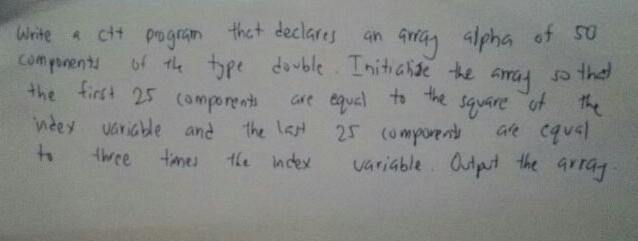 Write a c++ program that declares an array alpha of 50
components of the type double. Initialize the array so that
the first 25 components are equal to the square of the
index variable and the last 25 components are equal
to three times the index variable. Output the array.